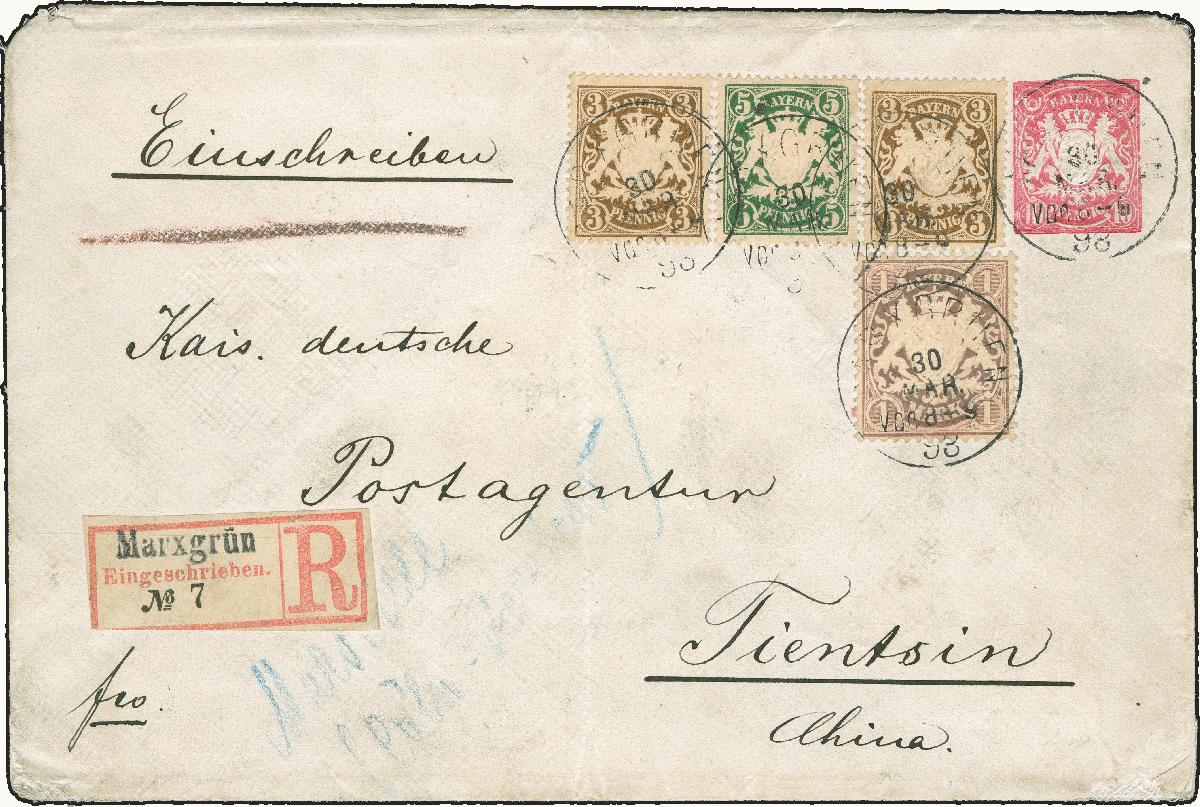 Einschreiben
3 BAYERN 3
3 PFENNIG 3
5 BAYERN 5
5 PFENNIG 5
3 BAYERN 3
3 PFENNIG 3
BAYERN
10
1 BAYERN 1
1
MARXGRÜN
30
MAR.
VOR. 8-9
98
Kais. deutsche
Postagentur
Marxgrün
Eingeschrieben.
R
№ 7
Tientsin
fro.
China.